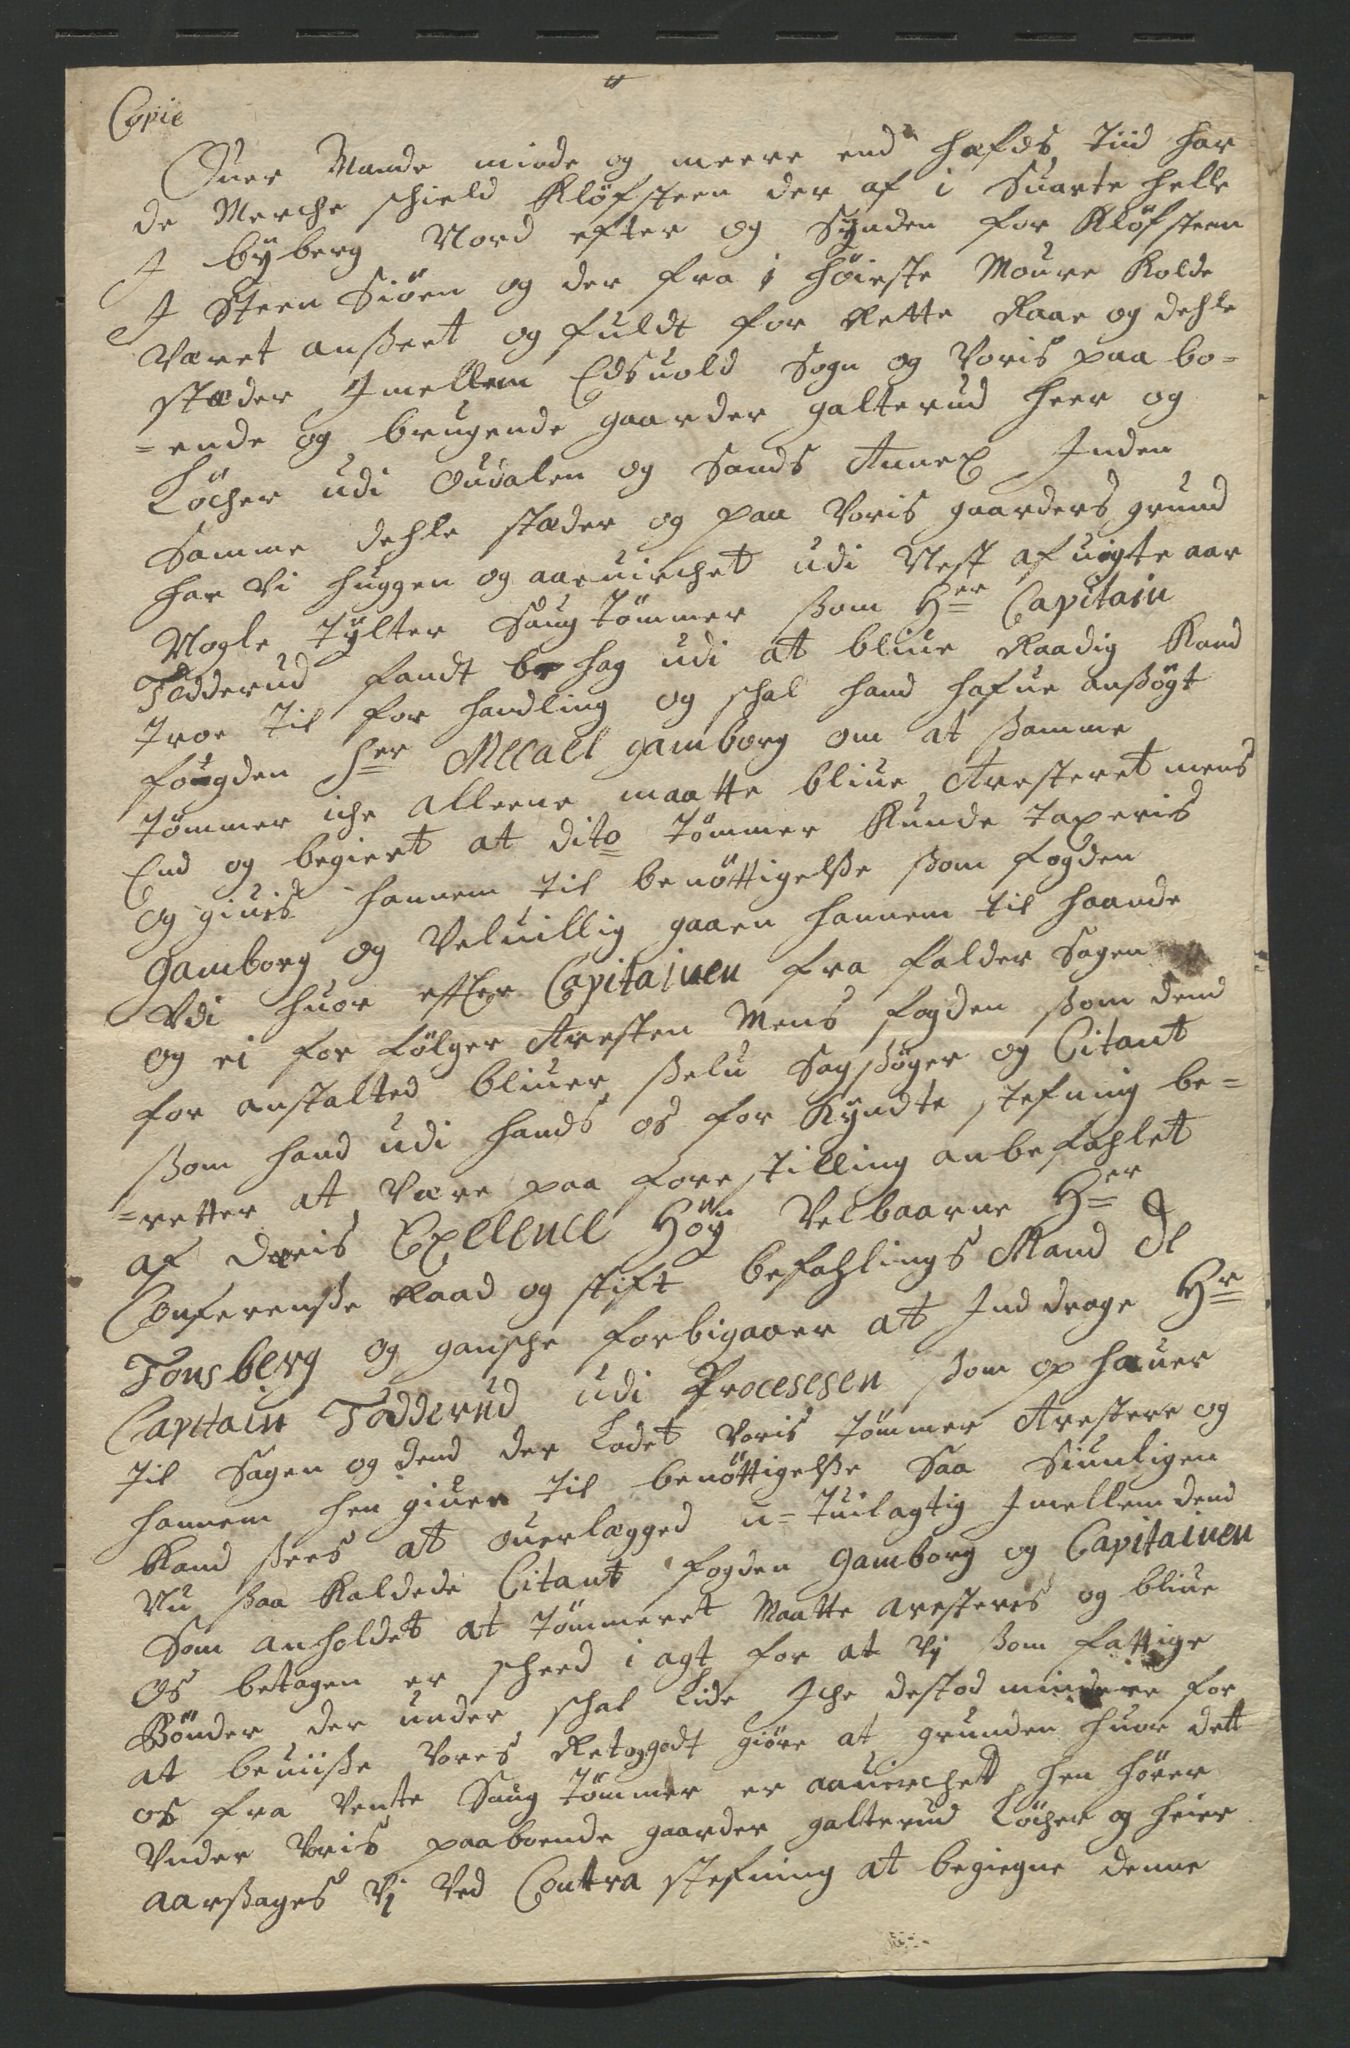 Copie
Ouer Mande minde og meere end hafds tiid har
de Merche schield Kløfsteen der af i Suarte helle
I byberg Nord efter og Synden for Kløfsteen
I Steen Siöen og der fra i höieste Moure Kolde
Været anßeet og fuldt for Rette Raae og dehle
stæder Imellem Edsuold Sogn og Voris paa bo-
=ende og brugende gaarder galterud heer og
Löcher udi Oudalen og Sands Annex Inden
Samme dehle stæder og paa Voris gaarders grund
har Vi huggen og aaruirchet udi Nest afuigte aar
Nogle Tylter Saug Tömmer ßom Her Capitain
Todderud fandt behag udi at bliue Raadig Kand
troe til forhandling og schal hand hafue anßögt
fougden Her Mecael gamborg om at ßamme
Tömmer iche alleene maatte bliue Aresteret mens
End og begiert at dito Tömmer Kunde taxeris
og giuis hannem til benöttigelße ßom fogden
Gamborg og Veluillig gaaen hannem til haande
Udi huor effter Capitainen fra falder Sagen
og ei for fölger Aresten Mens fogden ßom dend
for anstalted bliuer ßelu Sag ßöger og Citant
ßom hand udi hands os for Kyndte stefning be=
=retter at være paa forestilling anbefahlet
af Deris Exellence Höy Velbaarne Her
Conferenße Raad og stift befahlings Mand De
Tonsberg og gansche forbigaaer at Inddrage Hr
Capitain Todderud udi Procesesen ßom ophauer
til Sagen og dend der Ladet Voris Tömmer Arestere og
hannem hen giuen til benöttigelße Saa Siunligen
Kand ßees at ouerlægged u=tuilagtig Imellem dend
Nu ßaa Kaldede Citant fogden Gamborg og Capitainen
Som anholdet at Tömmeret Maatte aresteres og bliue
Os betagen er scheed i agt for at Vj ßom fattige
Bönder der under schal Lide Iche destod mindere for
at beuiiße Vores Ret og godt giöre at grunden huor dett
os fra Vente Saug Tömmer er aauirchet hen hörer
Under Voris paaboende gaarder galterud Löcher og heier
aarßages Vj Ved Contra stefning at begiegne denne